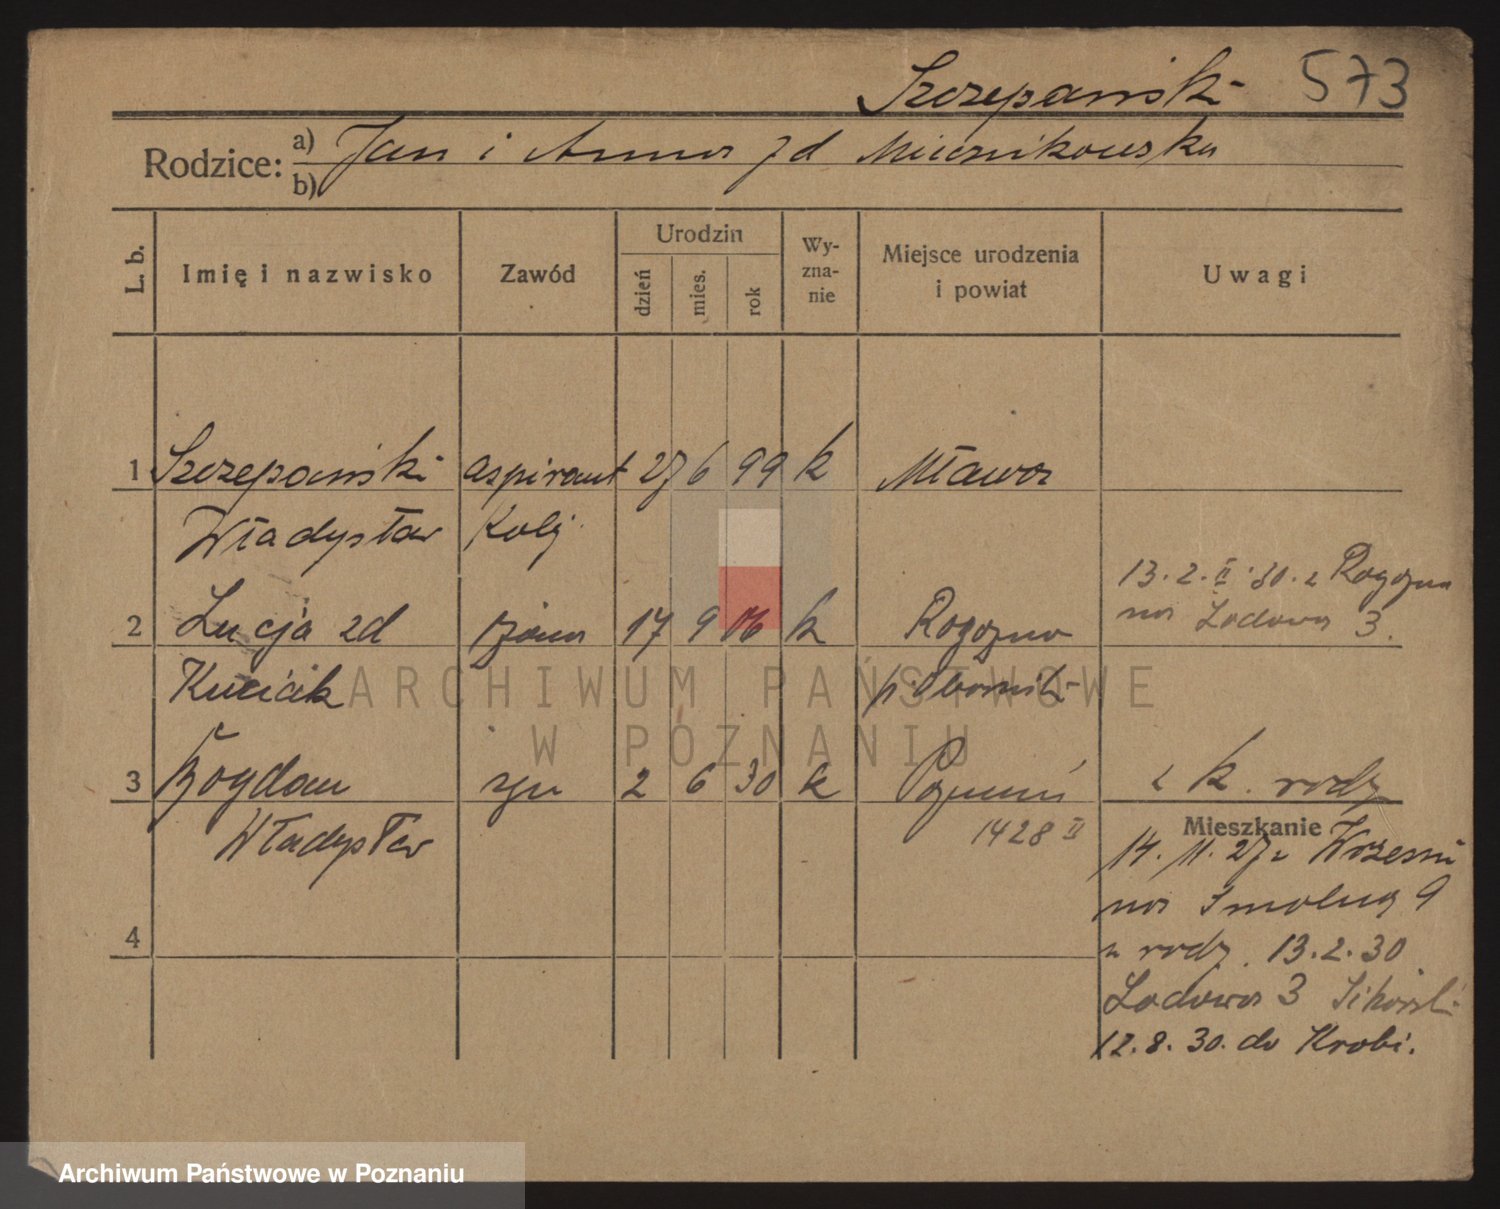 Szczepański 573
Rodzice: a) Jan i Anna zd
b)
L. b. Imię i nazwisko Zawód Urodzin dzień mies. rok Wyznanie Miejsce urodzenia i powiat Uwagi
1 Szczepański aspirant 27 6 99 k Mława
Władysław Kolj.
13.2.II.30. z Rogozna
na Lodowa 3.
2 Łucja zd żona 17 9 06 k Rogozno
Kuciak p. Obornik
3 Bogdan syn 2 6 30 k Poznań z k. rodz
Władysław 1428 II
Mieszkanie
14. 11. 27 z Wrześni
na Smolna 9
u rodz. 13.2.30
4
Lodowa 3 Sikorski
12.8.30. do Krobi.
ARCHIWUM PAŃSTWOWE
W POZNANIU
Archiwum Państwowe w Poznaniu